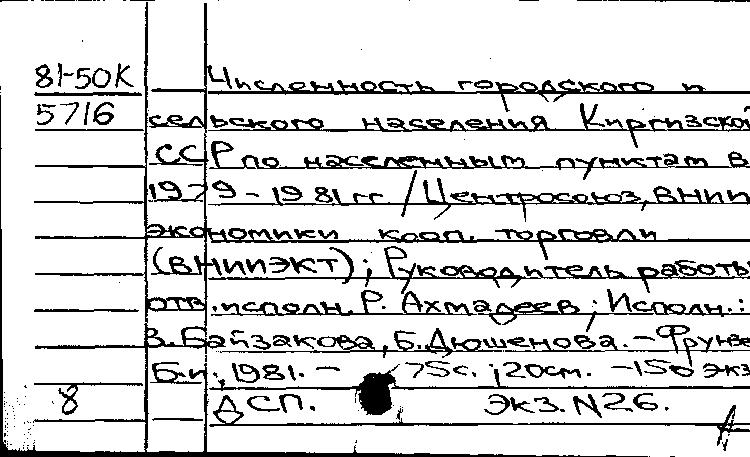 81-50К Численность городского и
5716 сельского населения Киргизской
ССР по населенным пунктам в
1979-1981гг / Центросоюз, ВНИИ
экономики кооп. торговли
(ВНИИЭКТ); Руководитель работы
отв. исполн. Р. Ахмадеев; Исполн.:
З. Байзакова, Б. Дюшенова. - Фрунзе
Б.и., 1981. - 75с.; 20см. - 150 экз
8 ДСП. Экз. N26.